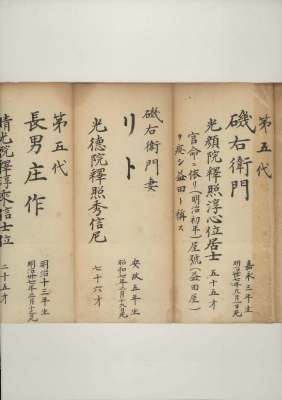 第五代
磯右衛門
嘉永三年生
明治卅七年九月一日死
光顔院釋照淳心位居士
五十五才
官命ニ依リ(明治初年)屋號(益田屋)
ヲ廃シ益田ト稱ス
磯右衛門妻
リト
安政五年生
昭和七年三月十六日死
光德院釋照秀信尼
七十六才
第五代
長男庄作
明治十三年生
明治卅七年三月十三死
晴光院釋淳乘信士位
二十五才